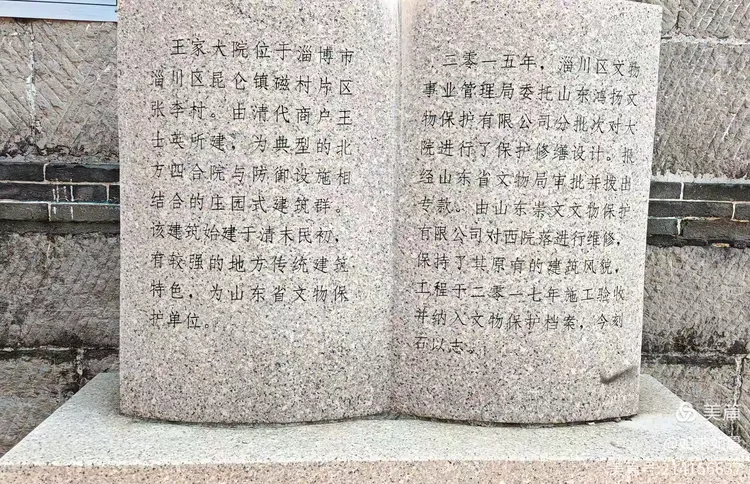 王家大院位于淄博市
淄川区昆仑镇磁村片区
张李村。由清代商户王
士英所建，为典型的北
方四合院与防御设施相
结合的庄园式建筑群。
该建筑始建于清末民初，
有较强的地方传统建筑
特色，为山东省文物保
护单位。
二零一五年，淄川区文物
事业管理局委托山东鸿扬文
物保护有限公司分批次对大
院进行了保护修缮设计。报
经山东省文物局审批并拨出
专款。由山东崇文文物保护
有限公司对西院落进行维修，
保持了其原有的建筑风貌，
工程于二零一七年施工验收
并纳入文物保护档案，今刻
石以志。
美篇